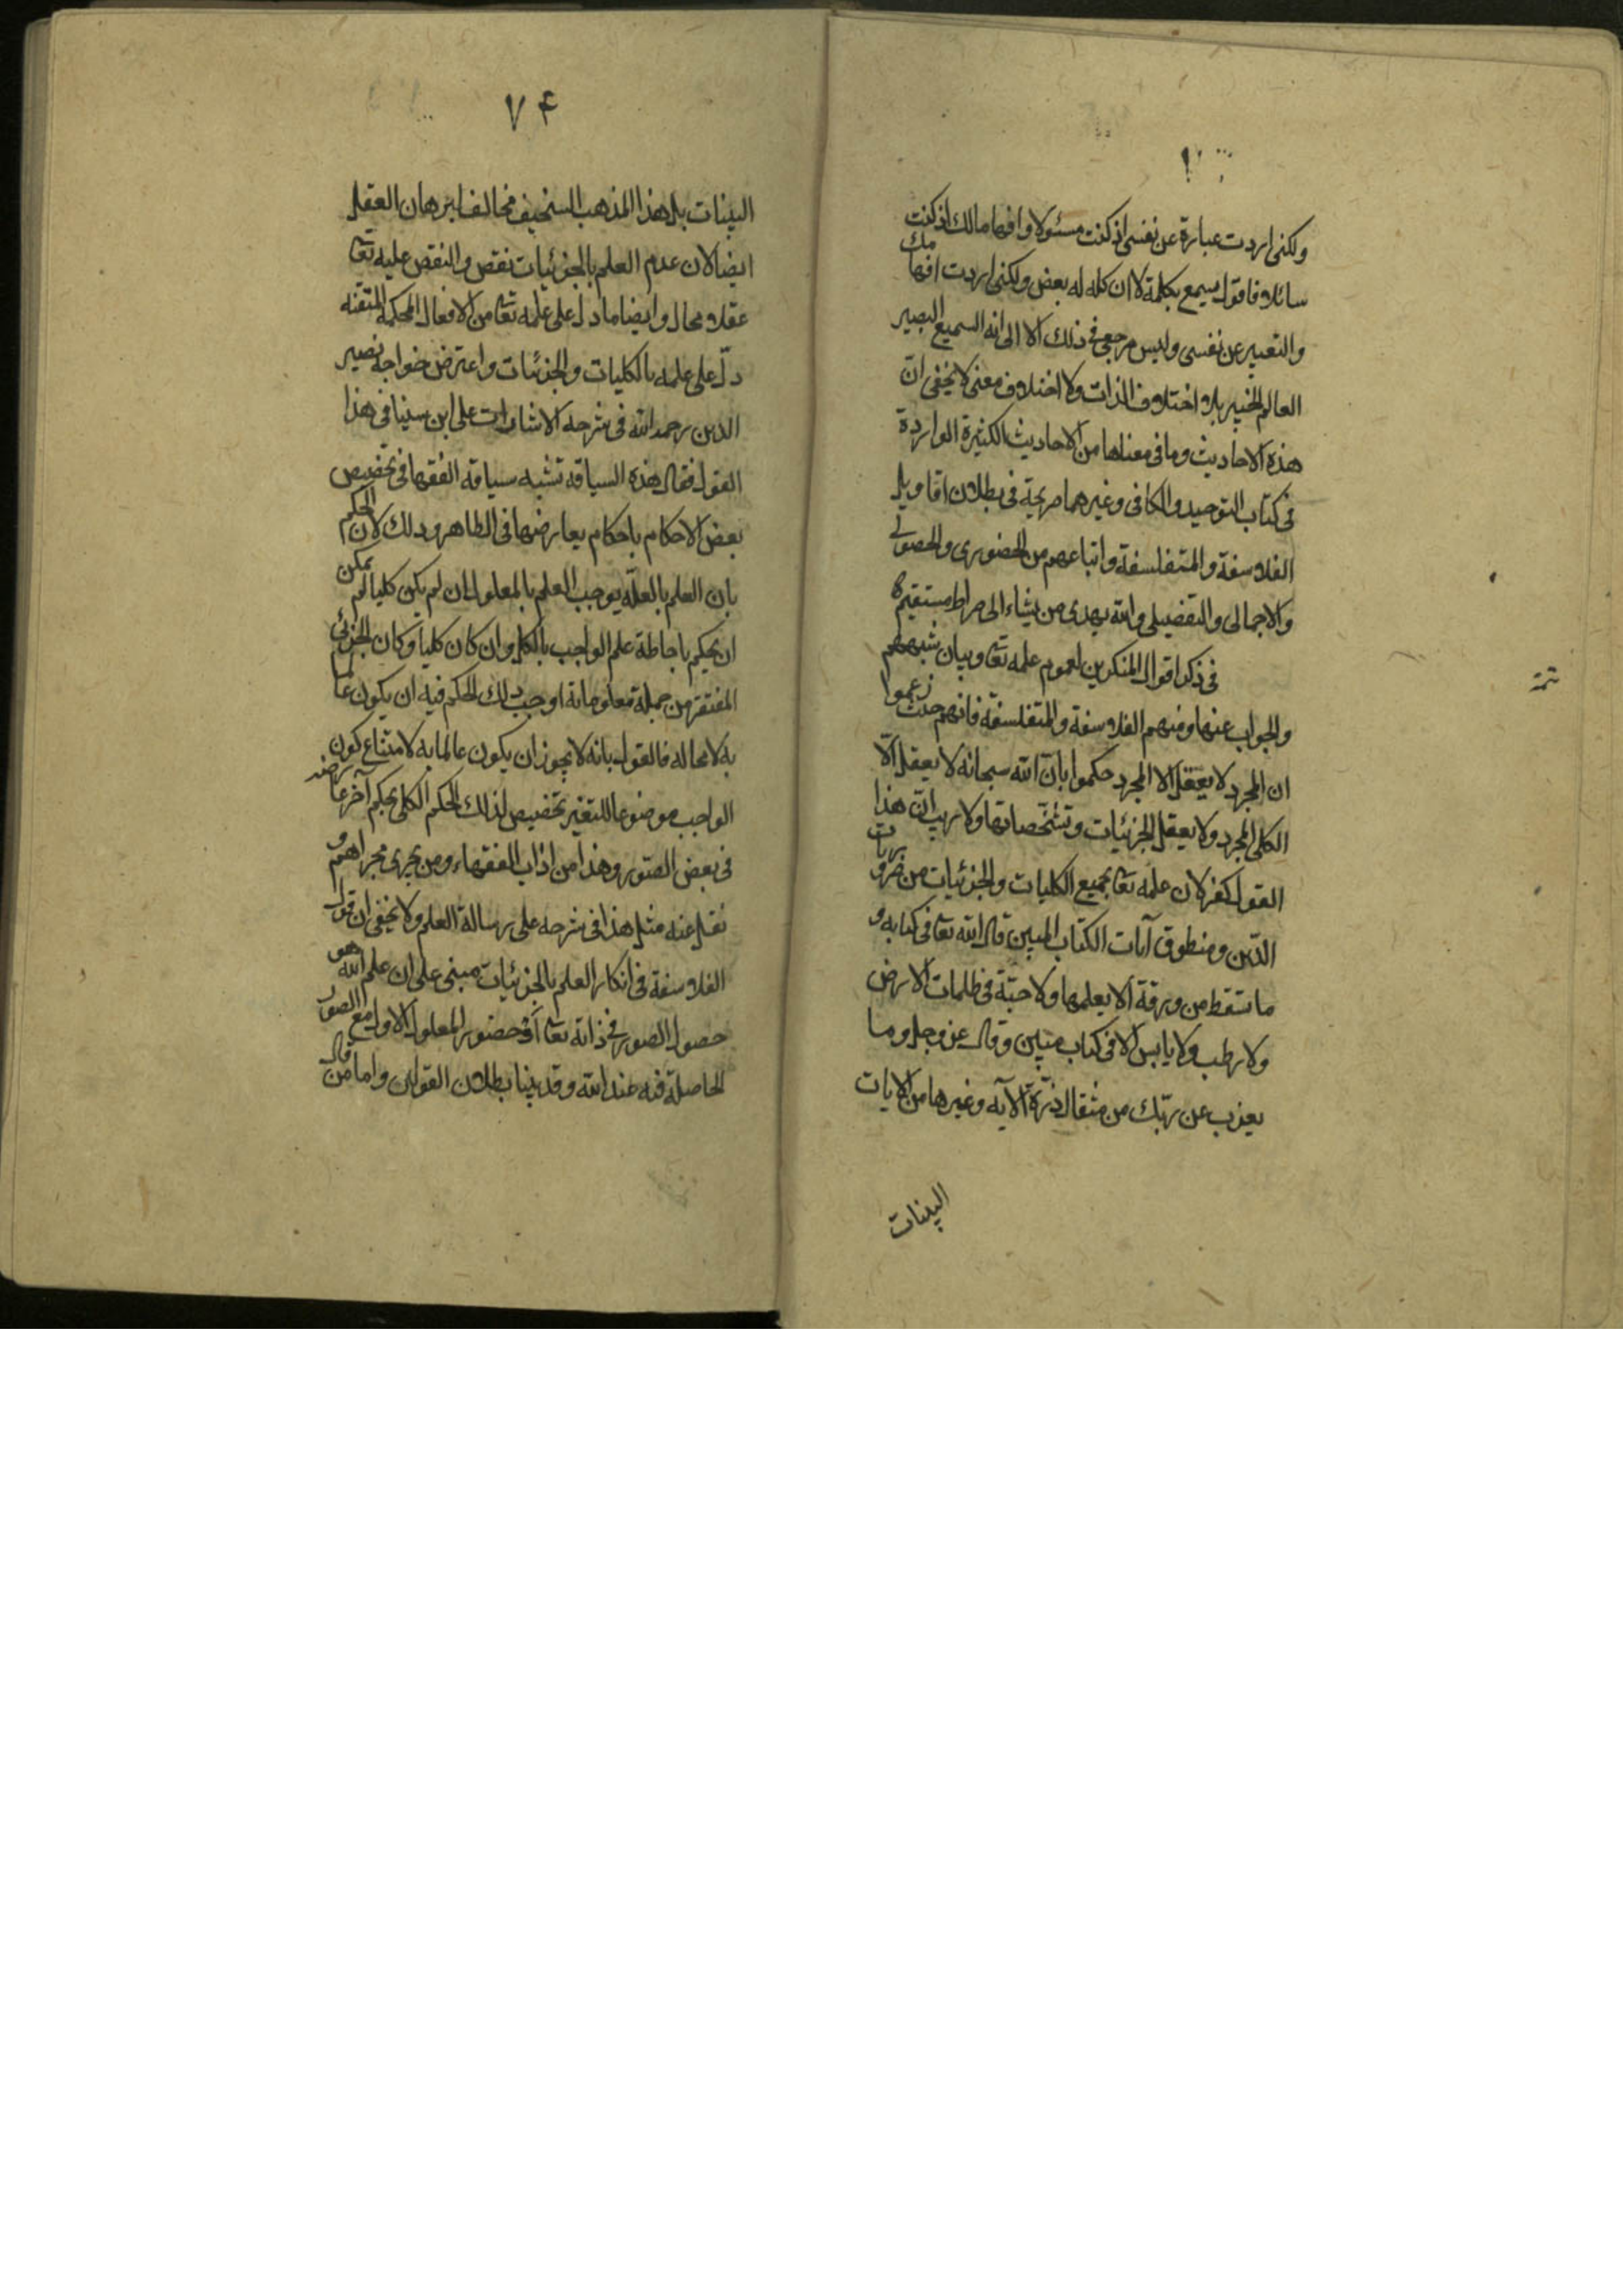 ولكنى اردت عبارة عن نفسى اذ كنت مسئولا وافهاما لك اذ كنت
سائلا فاقول يسمع بكلمة لا ان كله له بعض ولكنى اردت افهامك
والتعبير عن نفسى وليس مرجعى فى ذلك الا الى انه السميع البصير
العالم الخبير بلا اختلاف الذات ولا اختلاف معنى لا يخفى انّ
هذه الاحاديث وما فى معناها من الاحاديث الكثيرة الواردة
فى كتاب التوحيد والكافى وغيرهما صريحة فى بطلان اقاويل
الفلاسفة والمتفلسفة واتباعهم من الحضورى والحصولى
والاجمالى والتفضيلى والله يهدى من يشاء الى صراط مستقيم
تمة
فى ذكر اقوال المنكرين لعموم علمه تعا وبيان شبههم
والجواب عنها ومنهم الفلاسفة والمتفلسفة فانهم حيث زعموا
ان المجرد لا يعقل الا المجرد حكموا بانّ الله سبحانه لا يعقل الّا
الكلى المجرد ولا يعقل الجزئيات وتشخّصاتها ولا ريب انّ هذا
القول كفر لان علمه تعا بجميع الكليات والجزئيات من ضروريات
الدّين ومنطوق آيات الكتاب المبين قال الله تعا فى كتابه و
ما تسقط من ورقة الا يعلمها ولا حبّة فى ظلمات الارض
ولا رطب ولا يابس الا فى كتاب مبين وقال عز وجل وما
يعزب عن ربّك من مثقال ذرّة الآية وغيرها من الايات
البينات
٧۴
البينات بل هذا المذهب السخيف مخالف لبرهان العقل
ايضا لان عدم العلم بالجزئيات نقص والنقص عليه تعا
عقلا محال وايضا ما دل على علمه تعا من الافعال المحكمة المتقنه
دلّ على علمه بالكليات والجزئيات واعترض خواجه نصير
الدين رحمه الله فى شرحه الاشارات على ابن سينا فى هذا
القول فقال هذه السياقه تشبه سياقة الفقها فى تخصيص
بعض الاحكام باحكام يعارضها فى الظاهر وذلك لان الحكم
بان العلم بالعلّة يوجب العلم بالمعلول ان لم يكن كليا لم يمكن
ان يحكم باحاطة علم الواجب بالكل وان كان كلياً وكان الجزئى
المفتقر من جملة معلوماته اوجب ذلك الحكم فيه ان يكون عالما
به لا محاله فالقول بانه لا يجوز ان يكون عالما به لامتناع كون
الواجب موضوعا للتغير تخصيص لذلك الحكم الكلى بحكم آخر عارضه
فى بعض الصّور وهذا من اداب الفقهاء ومن يجرى مجراهم و
نقل عنه مثل هذا فى شرحه على رسالة العلم ولا يخفى ان قول
الفلاسفة فى انكار العلم بالجزئيات مبنى على ان علم الله هو
حصول الصور فى ذاته تعا او حضور المعلول الاول مع الصور
الحاصلة فيه عند الله وقد بينا بطلان القولين واما من قال